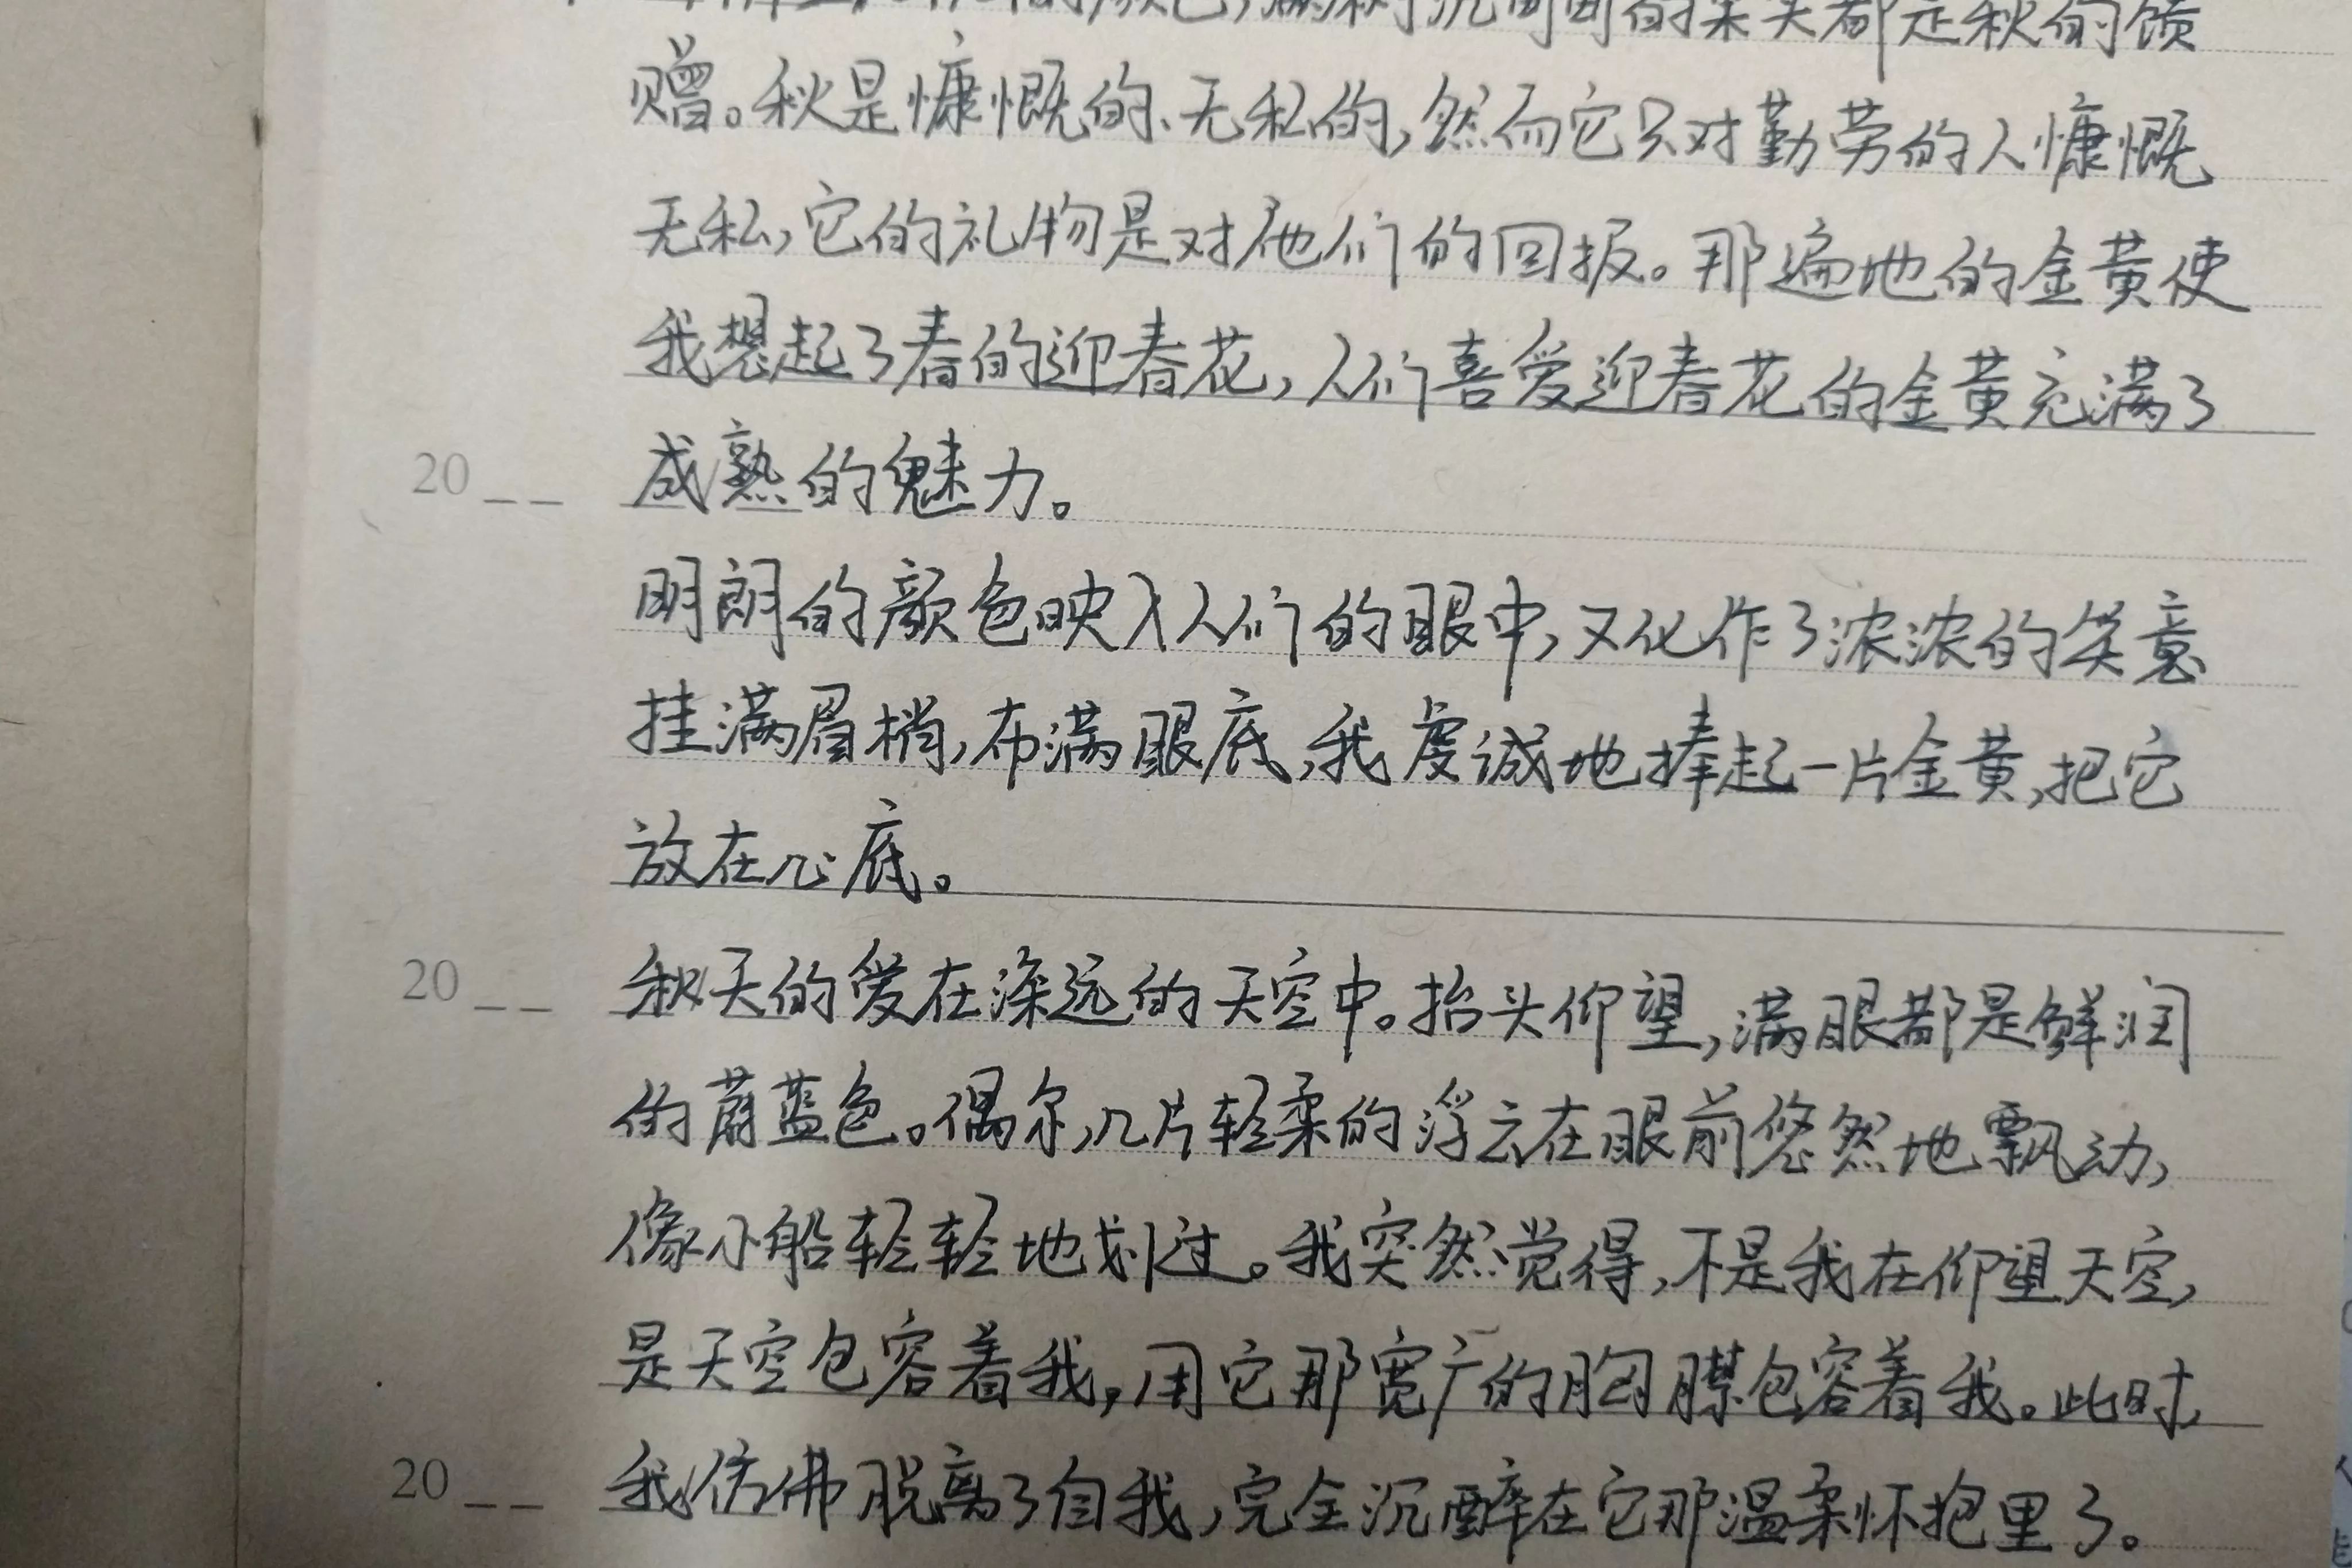 的颜色,满树沉甸甸的果实都是秋的馈
赠。秋是慷慨的、无私的,然而它只对勤劳的人慷慨
无私,它的礼物是对他们的回报。那遍地的金黄使
我想起了春的迎春花,人们喜爱迎春花的金黄充满了
20__ 成熟的魅力。
明朗的颜色映入人们的眼中,又化作了浓浓的笑意
挂满眉梢,布满眼底,我虔诚地捧起一片金黄,把它
放在心底。
20__ 秋天的爱在深远的天空中。抬头仰望,满眼都是鲜润
的蔚蓝色。偶尔,几片轻柔的浮云在眼前悠然地飘动,
像小船轻轻地划过。我突然觉得,不是我在仰望天空,
是天空包容着我,用它那宽广的胸膜包容着我。此时,
20__ 我仿佛脱离了自我,完全沉醉在它那温柔怀抱里了。